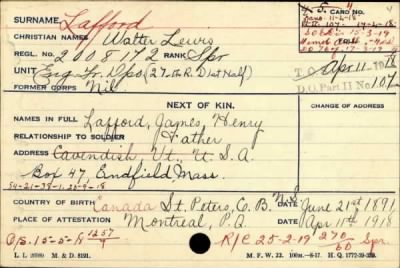 SURNAME Lafford
CHRISTIAN NAMES Walter Lewis
REGL. NO. 2008772 RANK Spr
UNIT Eng. Tr. Dpo (27th R. Dist Half)
FORMER CORPS Nil
T.O. Apr 11-1918
D.O. Part II No. 107
NEXT OF KIN.
CHANGE OF ADDRESS
NAMES IN FULL Lafford, James, Henry
RELATIONSHIP TO SOLDIER Father
ADDRESS Cavendish Vt., U.S.A.
Box 47, Endfield Mass.
54-21-38-1. 25-9-18
COUNTRY OF BIRTH Canada St. Peters, C. B. N.S. DATE June 21st 1891
PLACE OF ATTESTATION Montreal, P.Q. DATE Apr 11th 1918
O/S. 15-5-18 1257/9 R/C 25-2-19 270/50 Spr.
M. & D. 8191.
M. F. W. 22.